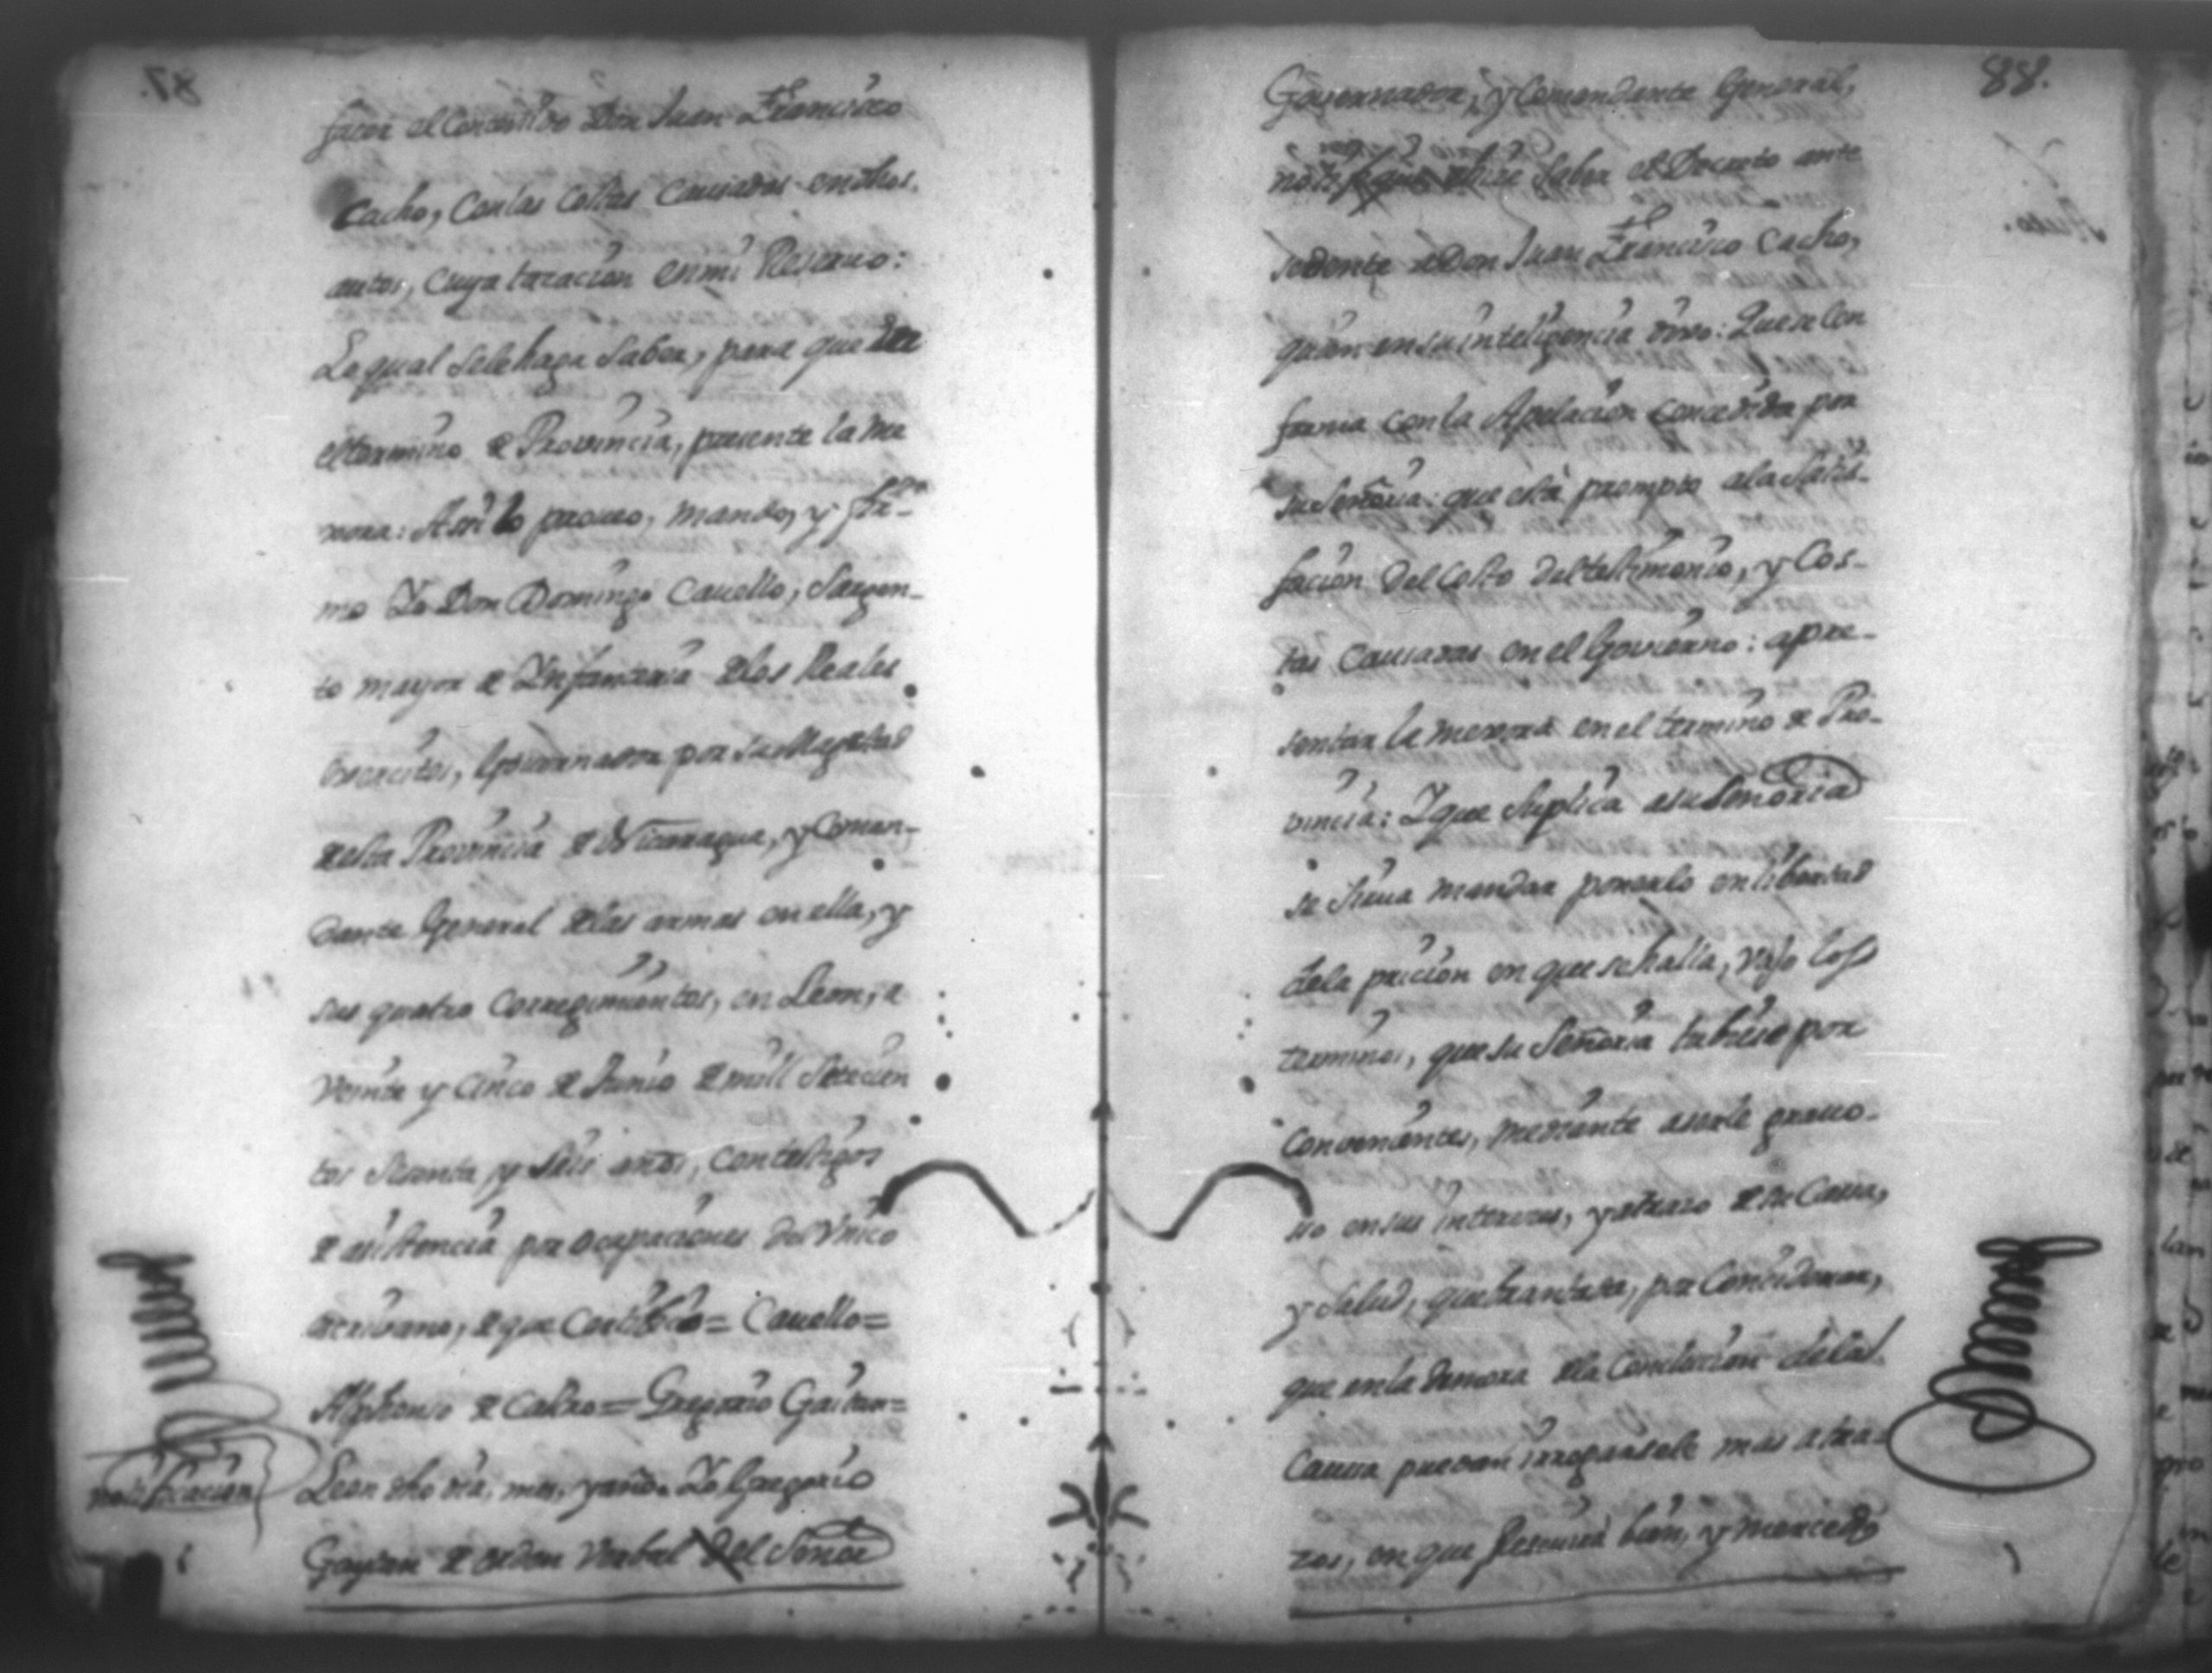 87.
facer el contenido Don Juan Francisco
Cacho, con las costas causadas en dhos.
autos, cuya tazacion en mi Reservo:
Lo qual se le haga saber, para que
el termino de Provincia, presente la me
xora: Assi lo proveo, mando, y fir-
mo Yo Don Domingo Cavello, Sargen-
to mayor de Infanteria de los Reales
Exercitos, Governador por su Magestad
de esta Provincia de Nicaragua, y Coman-
dante General de las armas en ella, y
sus quatro Corregimientos, en Leon, a
veinte y cinco de Junio de mill setecien
tos sesenta, y seis años, con testigos
de asistencia por ocupaciones del Unico
escrivano, de que certifico = Cavello =
Alphonso de Castro = Gregorio Gaitan =
notificacion
Leon dho dia, mes, y año. Yo Gregorio
Gaytan de orden verbal del Señor
88.
Governador, y Comandante General,
hise saber el Decreto ante
sedente a Don Juan Francisco Cacho,
quien en su inteligencia dixo: Que se con
forma con la Apelacion concedida por
su Señoria: que està prompto a la satis-
facion del costo del testimonio, y cos-
tas causadas en el Govierno: a pre-
sentar la mexora en el termino de Pro-
vincia: Y que suplica a su Señoria
se sirva mandar ponerlo en libertad
de la pricion en que se halla, vajo los
terminos, que su Señoria tubiese por
convenientes, mediante a serle gravo-
so en sus intereses, y atrazo de su Causa,
y salud, quebrantada, por considerar,
que en la demora de la conclucion de la
Causa puedan irrogarsele mas atra-
zos, en que Resivirà bien, y merced